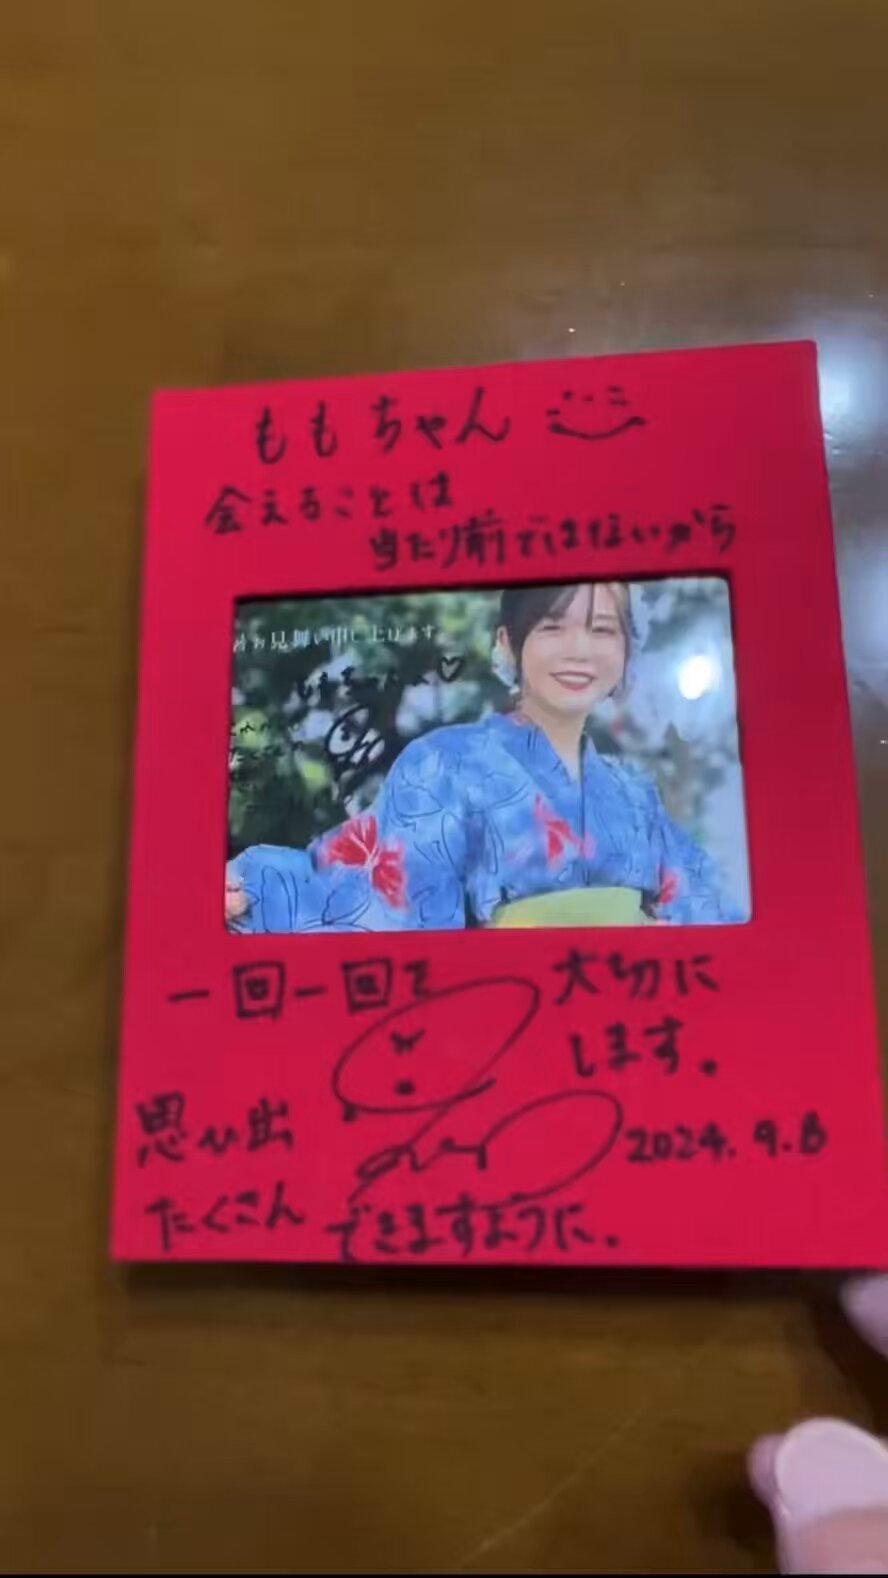 ももちゃん
会えることは
当たり前ではないから
お見舞い申し上げます。
ももちゃんへ♡
一回一回を大切に
します。
思い出
2024.9.8
たくさんできますように。